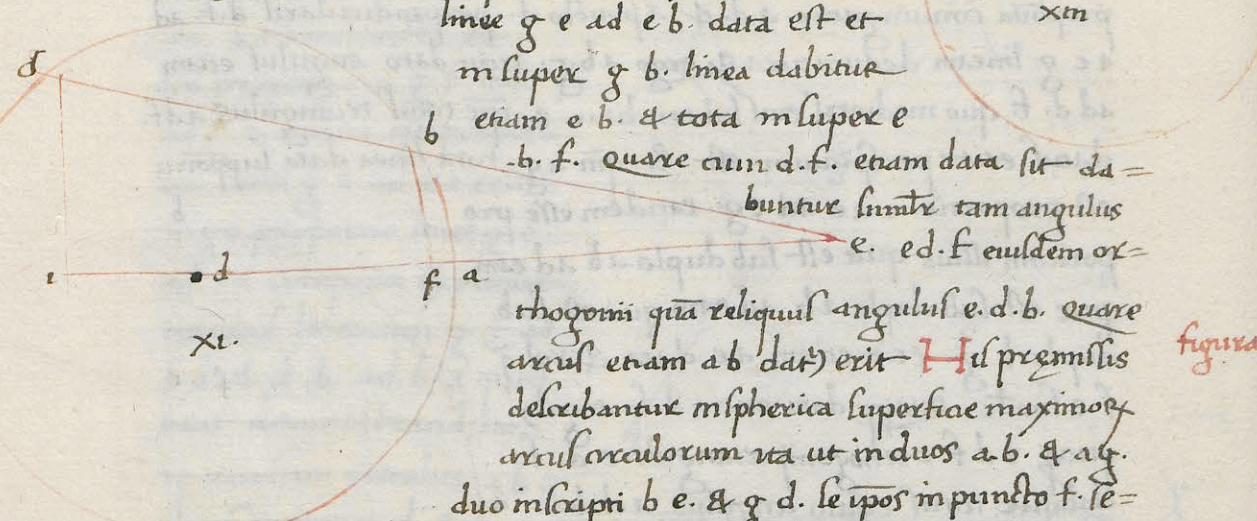 linee g e ad e b data est et
xm
insuper g b. linea dabitur
etiam e b. & tota insuper e
.b. f. quare cum d.f. etiam data sit da=
buntur similr tam angulus
e d. f eiusdem or=
thogonii quā reliquus angulus e. d. b. quare
arcus etiam a b dat) erit His pręmissis
figura
describantur in spherica superficie maximoꝝ
arcus circulorum ita ut in duos a. b. & a g.
duo inscripti b e. & g d. se ip̄os in puncto f. se=
g
b
e.
i
d
f a
xi.